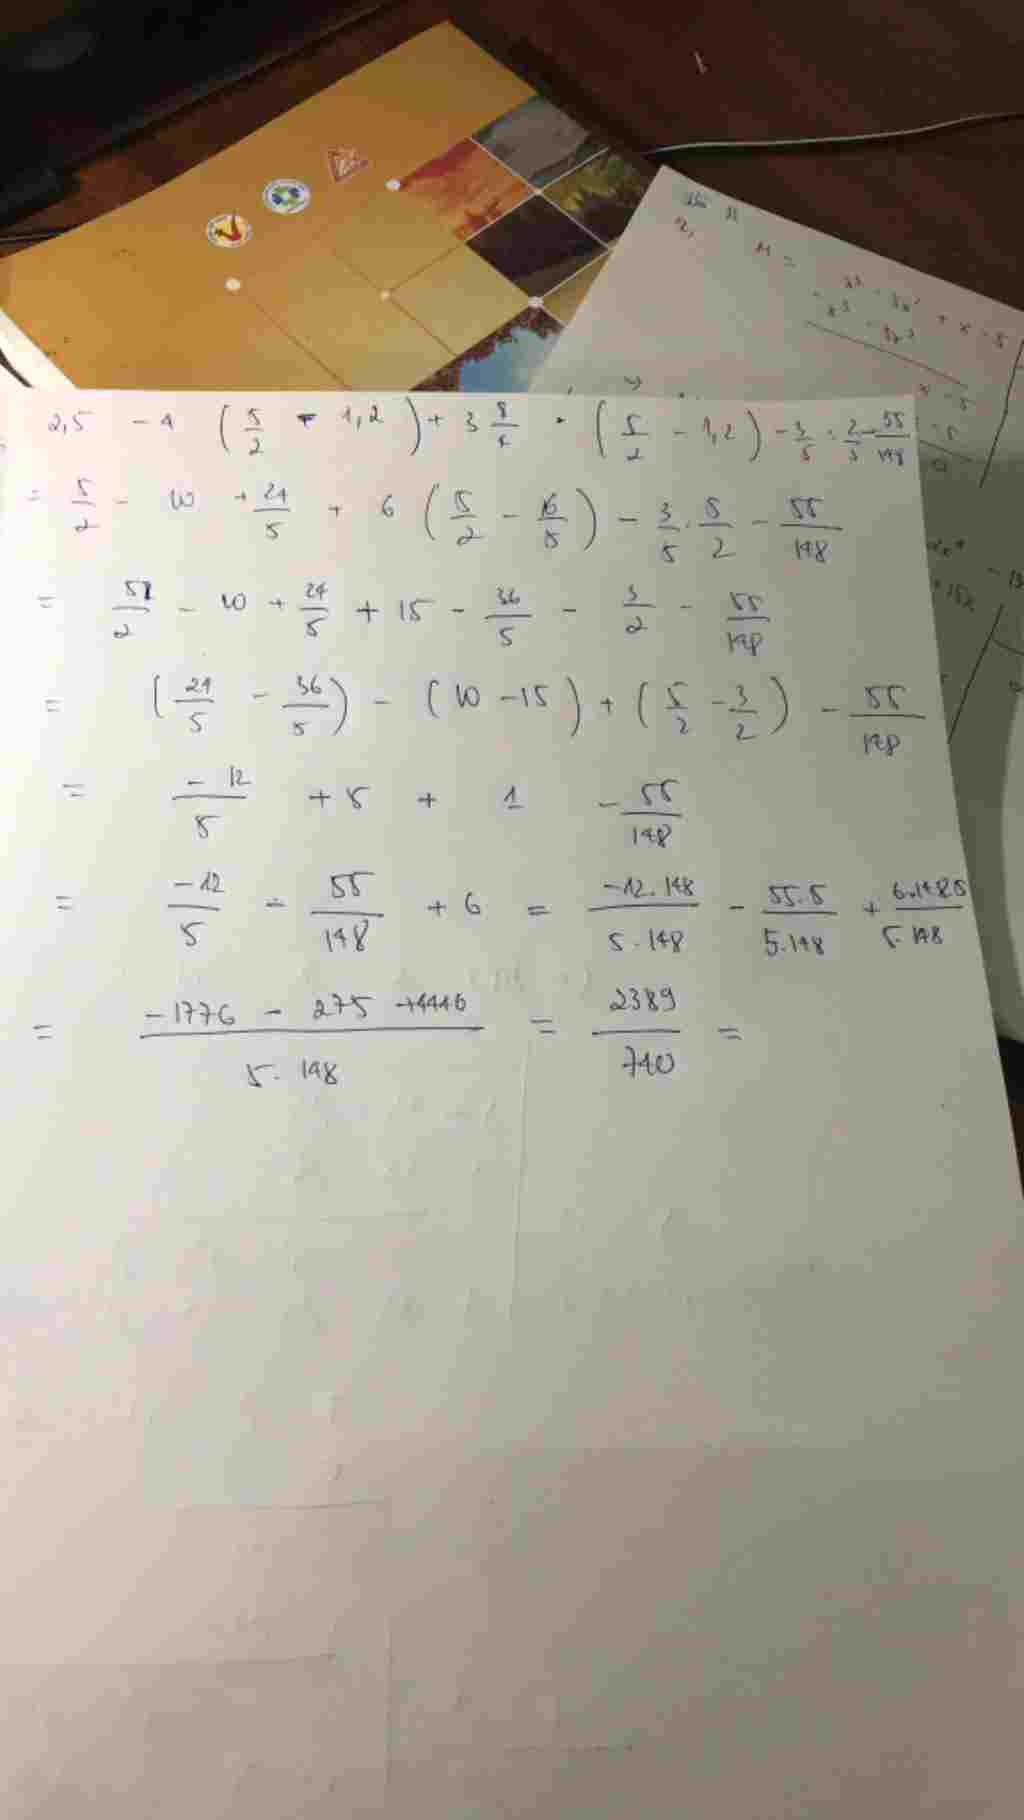 2,5 - 4 (5/2 - 1,2) + 3 8/4 . (5/2 - 1,2) - 3/5 : 2/5 - 55/148
= 5/2 - 10 + 24/5 + 6 (5/2 - 6/5) - 3/5 . 5/2 - 55/148
= 5/2 - 10 + 24/5 + 15 - 36/5 - 3/2 - 55/148
= (24/5 - 36/5) - (10 - 15) + (5/2 - 3/2) - 55/148
= -12/5 + 5 + 1 - 55/148
= -12/5 - 55/148 + 6 = -12.148/5.148 - 55.5/5.148 + 6.148.5/5.148
= (-1776 - 275 + 4440)/5.148 = 2389/740 =
M =
+ x - 5
x - 5
- 5
0